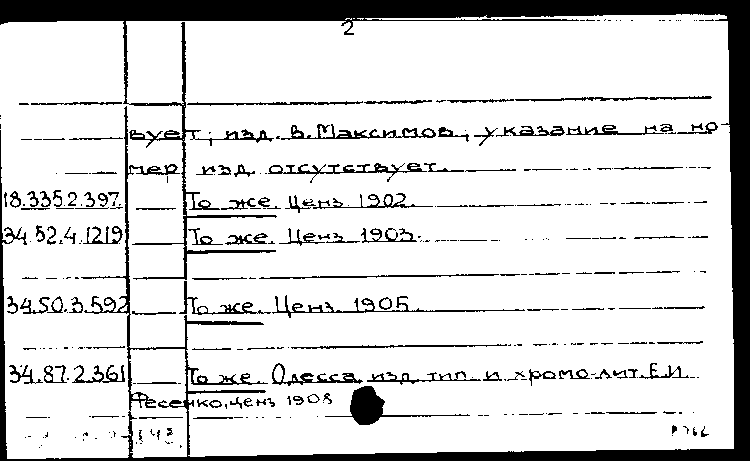 2
вует; изд. В. Максимов, указание на но-
мер изд. отсутствует.
18.335.2.397. То же. Ценз 1902.
34.52.4.1219 То же. Ценз 1903.
34.50.3.592 То же. Ценз. 1905.
34.87.2.361 То же. Одесса, изд. тип. и хромо-лит. Е.И.
Фесенко, ценз 1908